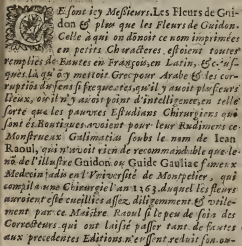 CE sont icy Messieurs, Les Fleurs de Gui-
don & plus que les Fleurs de Guidon.
Celle à qui on dōnoit ce nom imprimées
en petits Characteres, estoient toutes
remplies de Fautes en François, en Latin, & jusques
là, qu'on y mettoit Grec pour Arabe & les cor-
ruptiōs du sens si frequentes, qu'il y avoit plusieurs
lieux, où il n'y avoit point d'intelligence, en telle
sorte que les pauvres Estudians Chirurgiens qui
sont és Boutiques avoient pour leur Rudiment ce
Monstrueux Galimatias sous le nom de Iean
Raoul, qui n'avoit rien de recommandable que le
nō de l'illustre Guidon ou Guide Gauliac fameux
Medecin jadis en l'Université de Montpelier, qui
compila une Chirurgie l'an 1363. duquel les fleurs
auroient esté cueillies assez diligemment & veile-
ment par ce Maistre Raoul si le peu de soin des
Correcteurs qui ont laissé passer tant de fautes
aux precedentes Editions n'eussent reduit son ou-